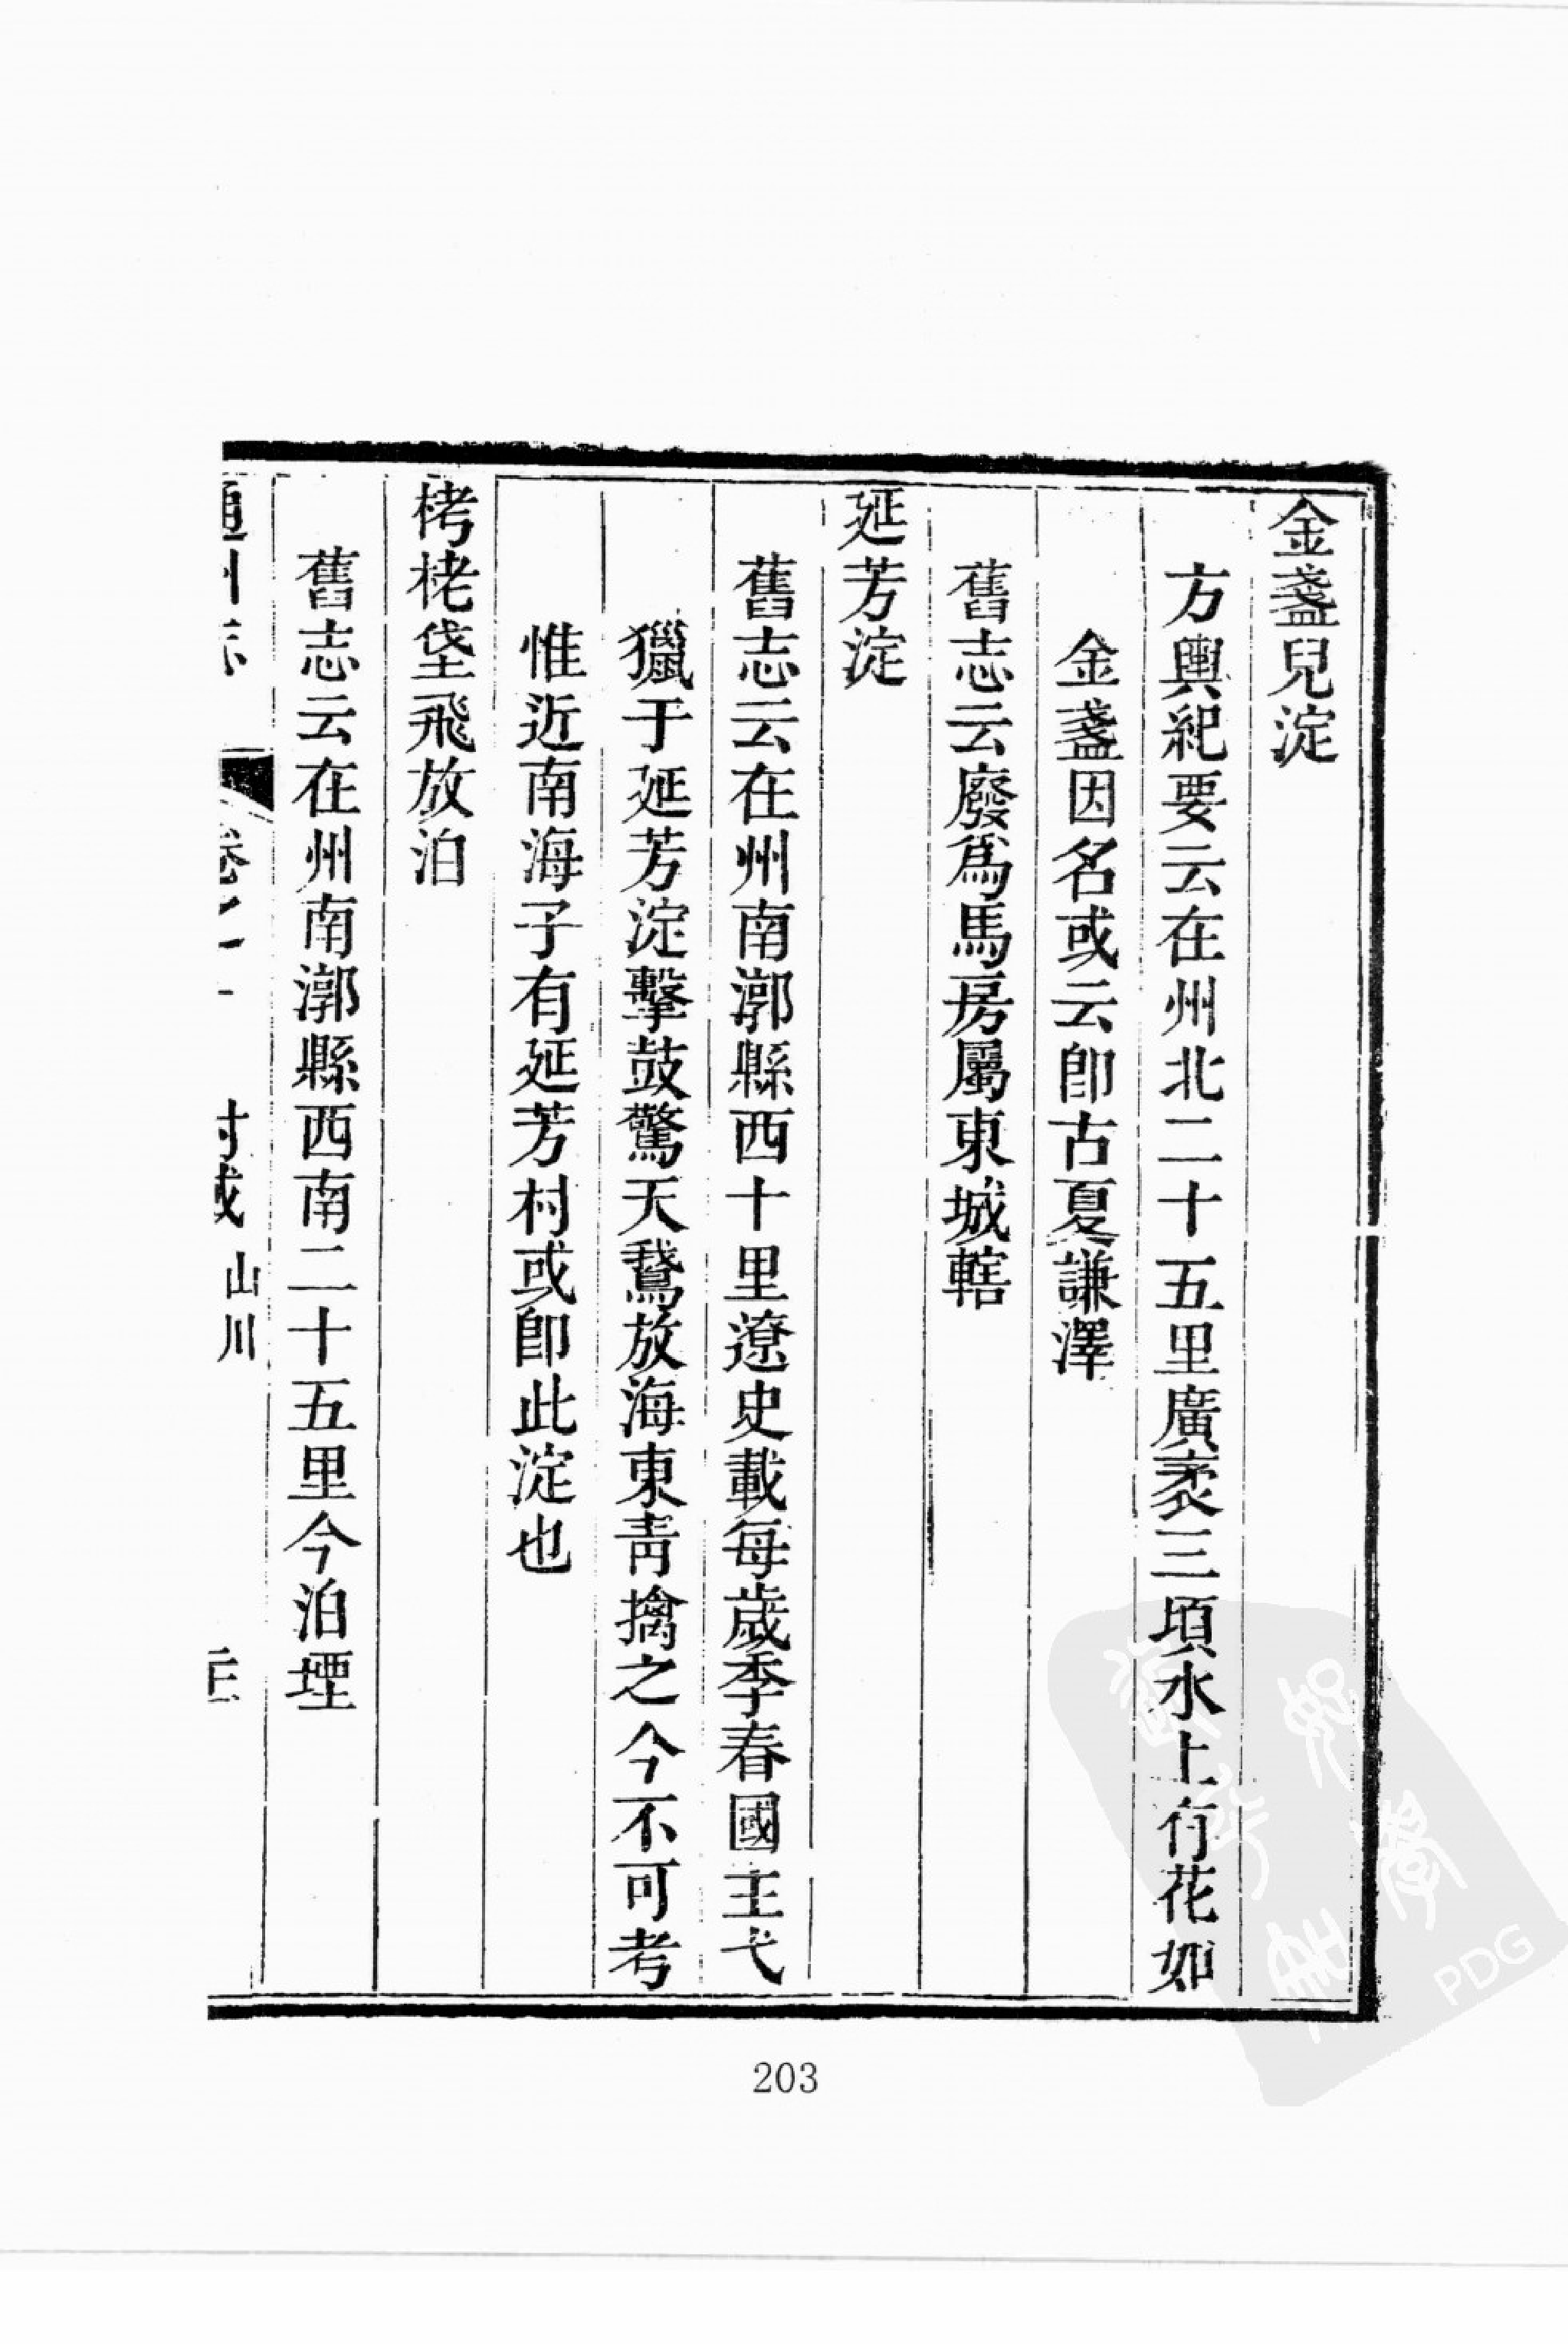 金盞兒淀
方輿紀要云在州北二十五里廣袤三頃水上有花如
金盞因名或云卽古夏謙澤
舊志云廢爲馬房屬東城轄
延芳淀
舊志云在州南漷縣西十里遼史載每歲季春國主弋
獵于延芳淀擊鼓驚天鵞放海東靑擒之今不可考
惟近南海子有延芳村或卽此淀也
栲栳垡飛放泊
舊志云在州南漷縣西南二十五里今泊堙
山川
203
PDG